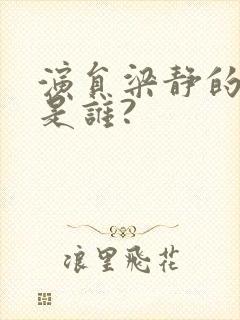 演員梁靜的
是誰?
浪里飛花